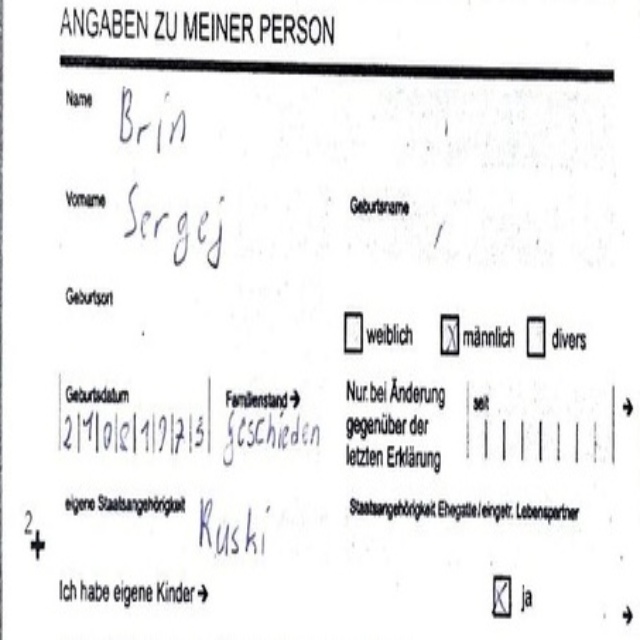 ANGABEN ZU MEINER PERSON
Name
Brin
Vorname
Sergej
Geburtsname
Geburtsort
weiblich
männlich
divers
Geburtsdatum
21081973
Familienstand →
geschieden
Nur bei Änderung
gegenüber der
letzten Erklärung
seit
→
eigene Staatsangehörigkeit
Ruski
Staatsangehörigkeit Ehegatte/eingetr. Lebenspartner
2
+
Ich habe eigene Kinder →
ja
→